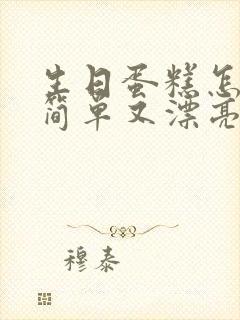 生日蛋糕怎
简单又漂亮
穆泰